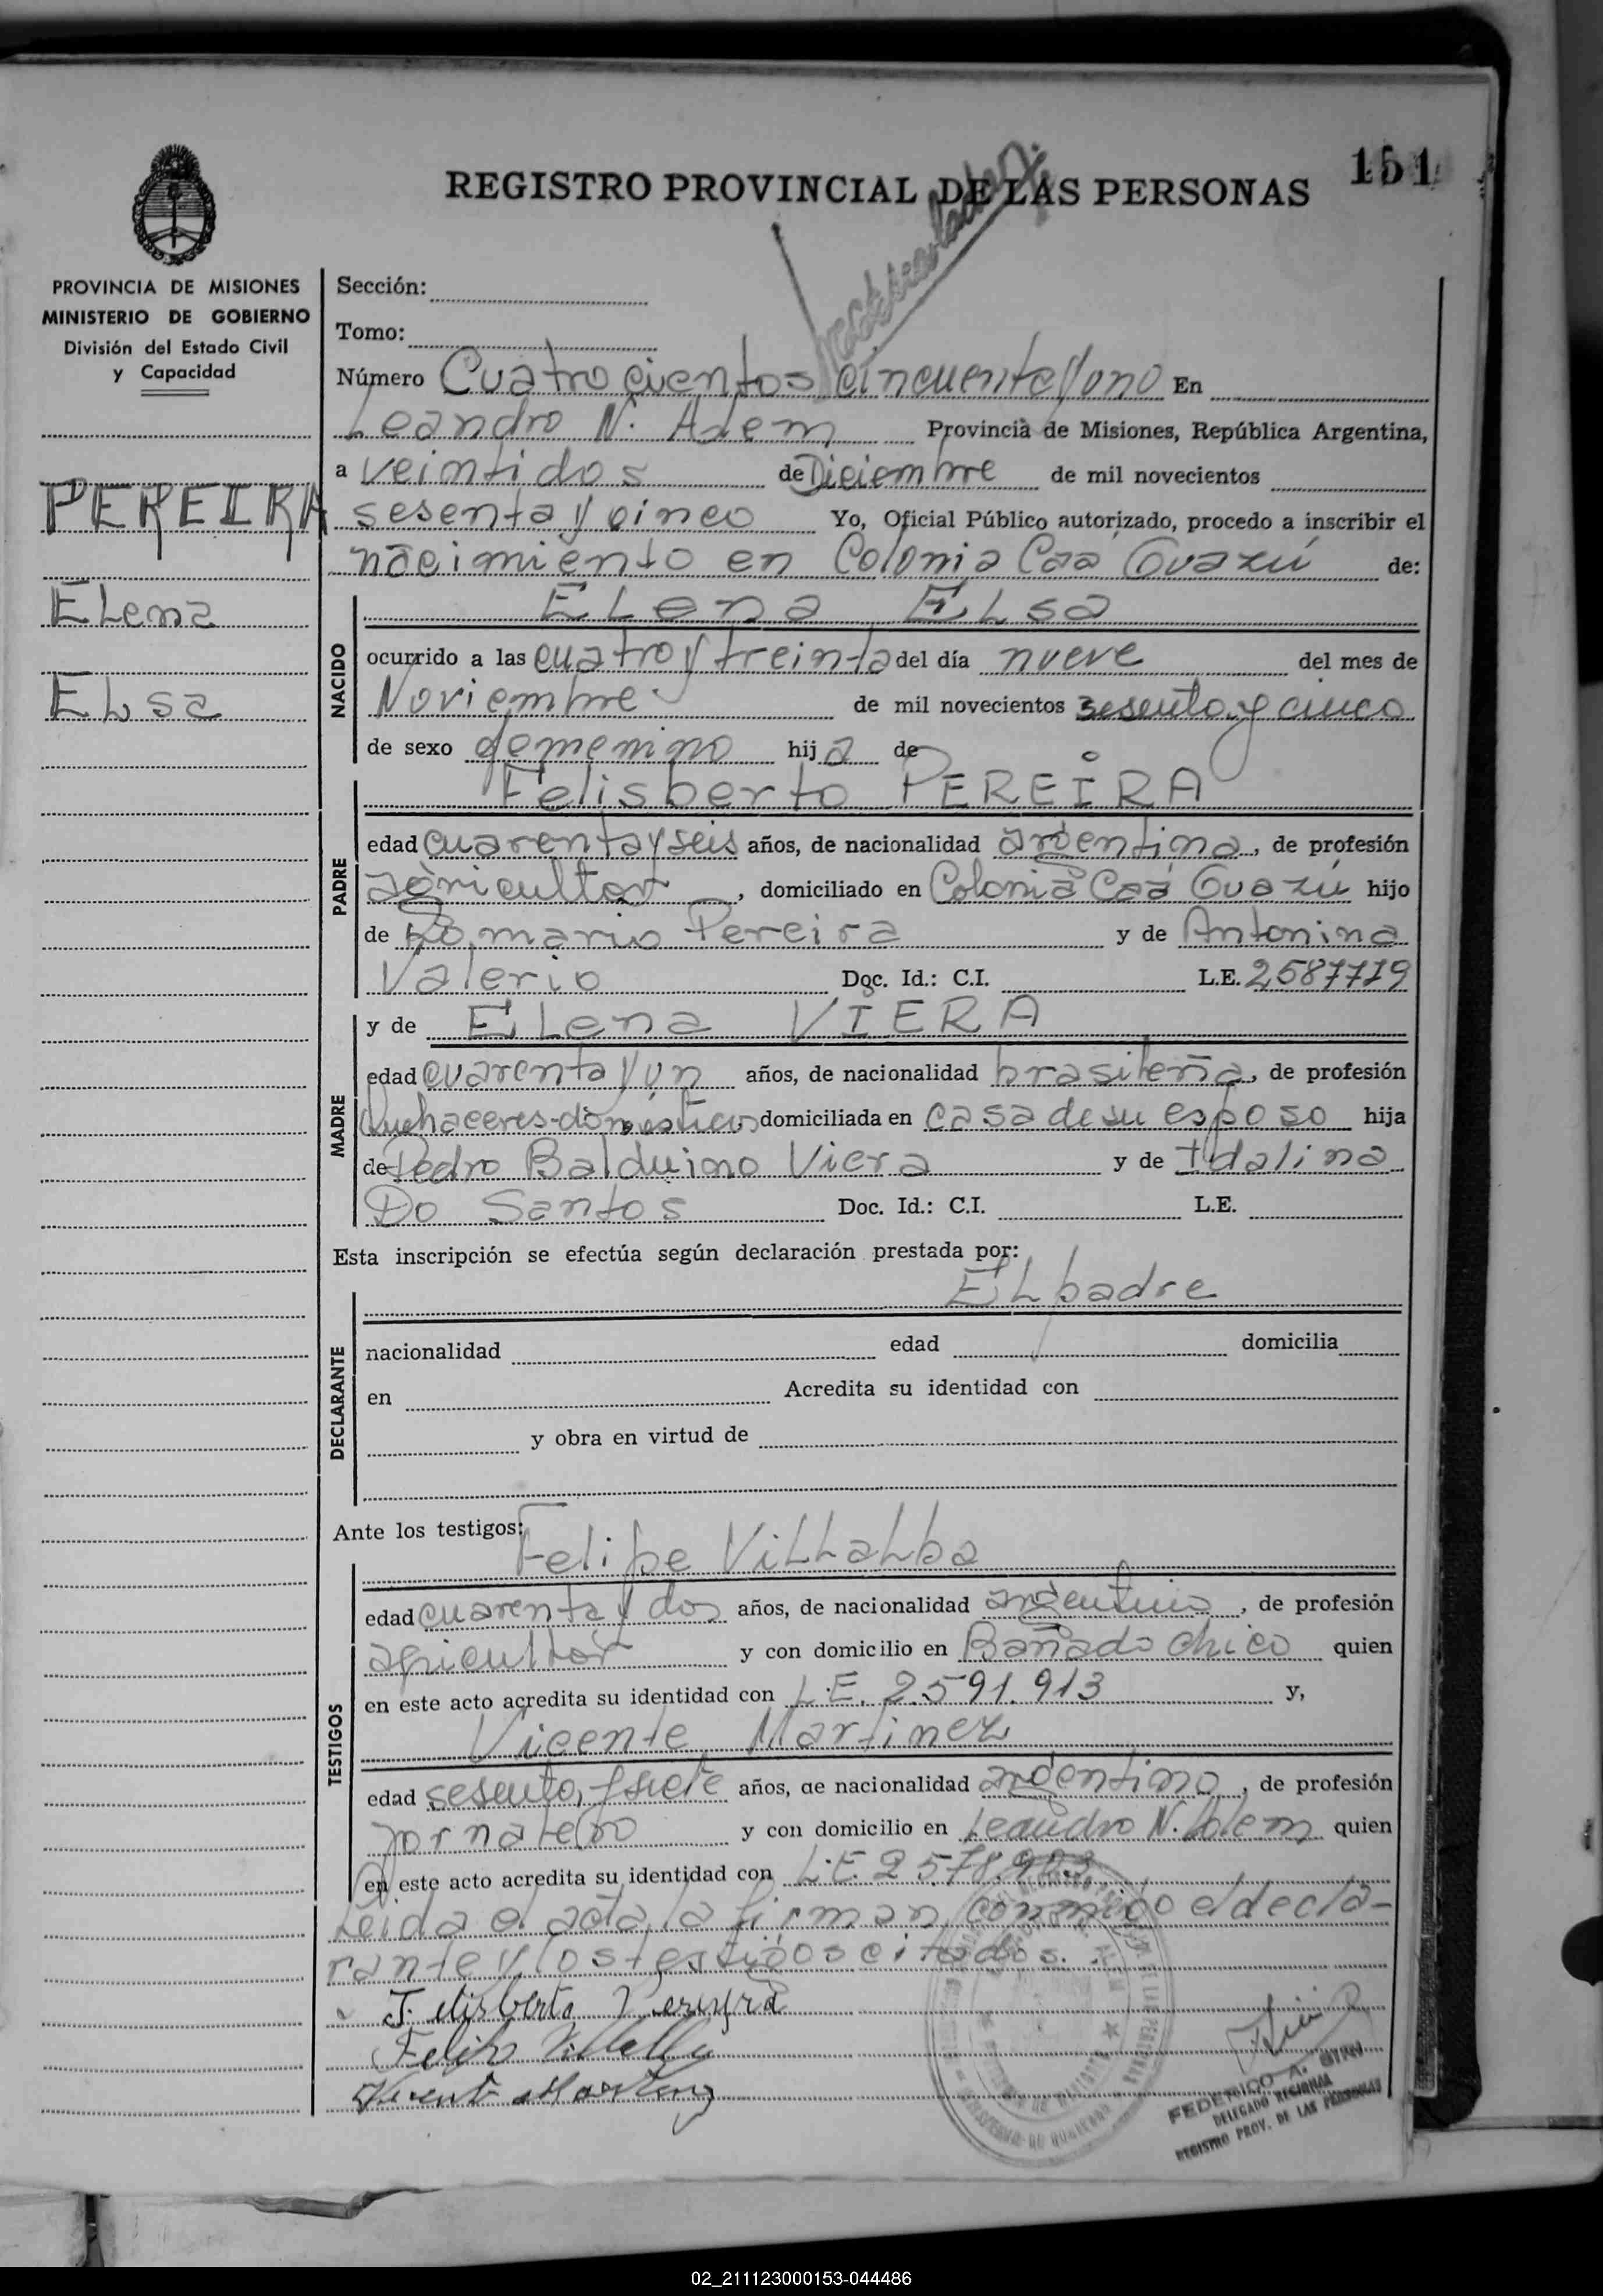 151
REGISTRO PROVINCIAL DE LAS PERSONAS
PROVINCIA DE MISIONES
MINISTERIO DE GOBIERNO
División del Estado Civil
y Capacidad
PEREIRA
Elena
Elsa
Sección:
Tomo:
Número Cuatrocientos cincuenta y uno En
Leandro N. Alem Provincia de Misiones, República Argentina,
a veintidos de Diciembre de mil novecientos
sesenta y cinco Yo, Oficial Público autorizado, procedo a inscribir el
nacimiento en Colonia Caa Guazú de:
NACIDO
Elena Elsa
ocurrido a las cuatro y treinta del día nueve del mes de
Noviembre de mil novecientos sesenta y cinco
de sexo femenino hija de
Felisberto PEREIRA
PADRE
edad cuarenta y seis años, de nacionalidad argentina, de profesión
agricultor, domiciliado en Colonia Caá Guazú hijo
de Romario Pereira y de Antonina
Valerio Doc. Id.: C.I. L.E. 2587719
MADRE
y de Elena VIERA
edad cuarenta y un años, de nacionalidad brasileña, de profesión
Quehaceres-domésticos domiciliada en casa de su esposo hija
de Pedro Balduino Viera y de Idalina
Do Santos Doc. Id.: C.I. L.E.
Esta inscripción se efectúa según declaración prestada por:
DECLARANTE
El padre
nacionalidad edad domicilia
en Acredita su identidad con
y obra en virtud de
Ante los testigos:
TESTIGOS
Felipe Villalba
edad cuarenta y dos años, de nacionalidad argentino, de profesión
agricultor y con domicilio en Bañado Chico quien
en este acto acredita su identidad con L.E. 2.591.913 y,
Vicente Martinez
edad sesenta y siete años, de nacionalidad argentino, de profesión
jornalero y con domicilio en Leandro N. Alem quien
en este acto acredita su identidad con L.E. 2.578.903
Leida el acta, la firman conmigo el decla-
rante y los testigos citados.
Felisberto Pereyra
Felipe Villalba
Vicente Martinez
FEDERICO A.
DELEGADO REGIONAL
REGISTRO PROV. DE LAS PERSONAS
02_211123000153-044486